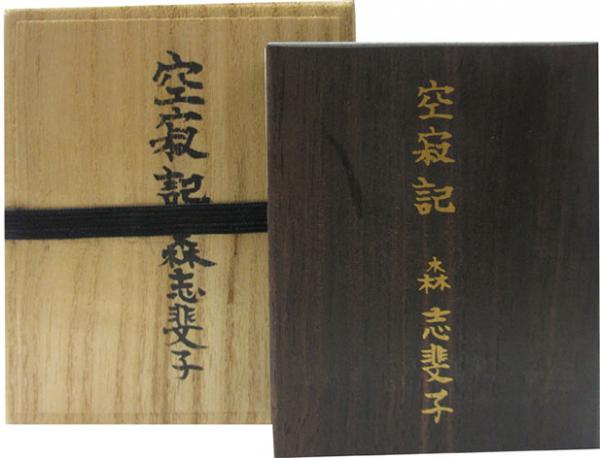 空寂記
森志斐子
空寂記
森 志斐子